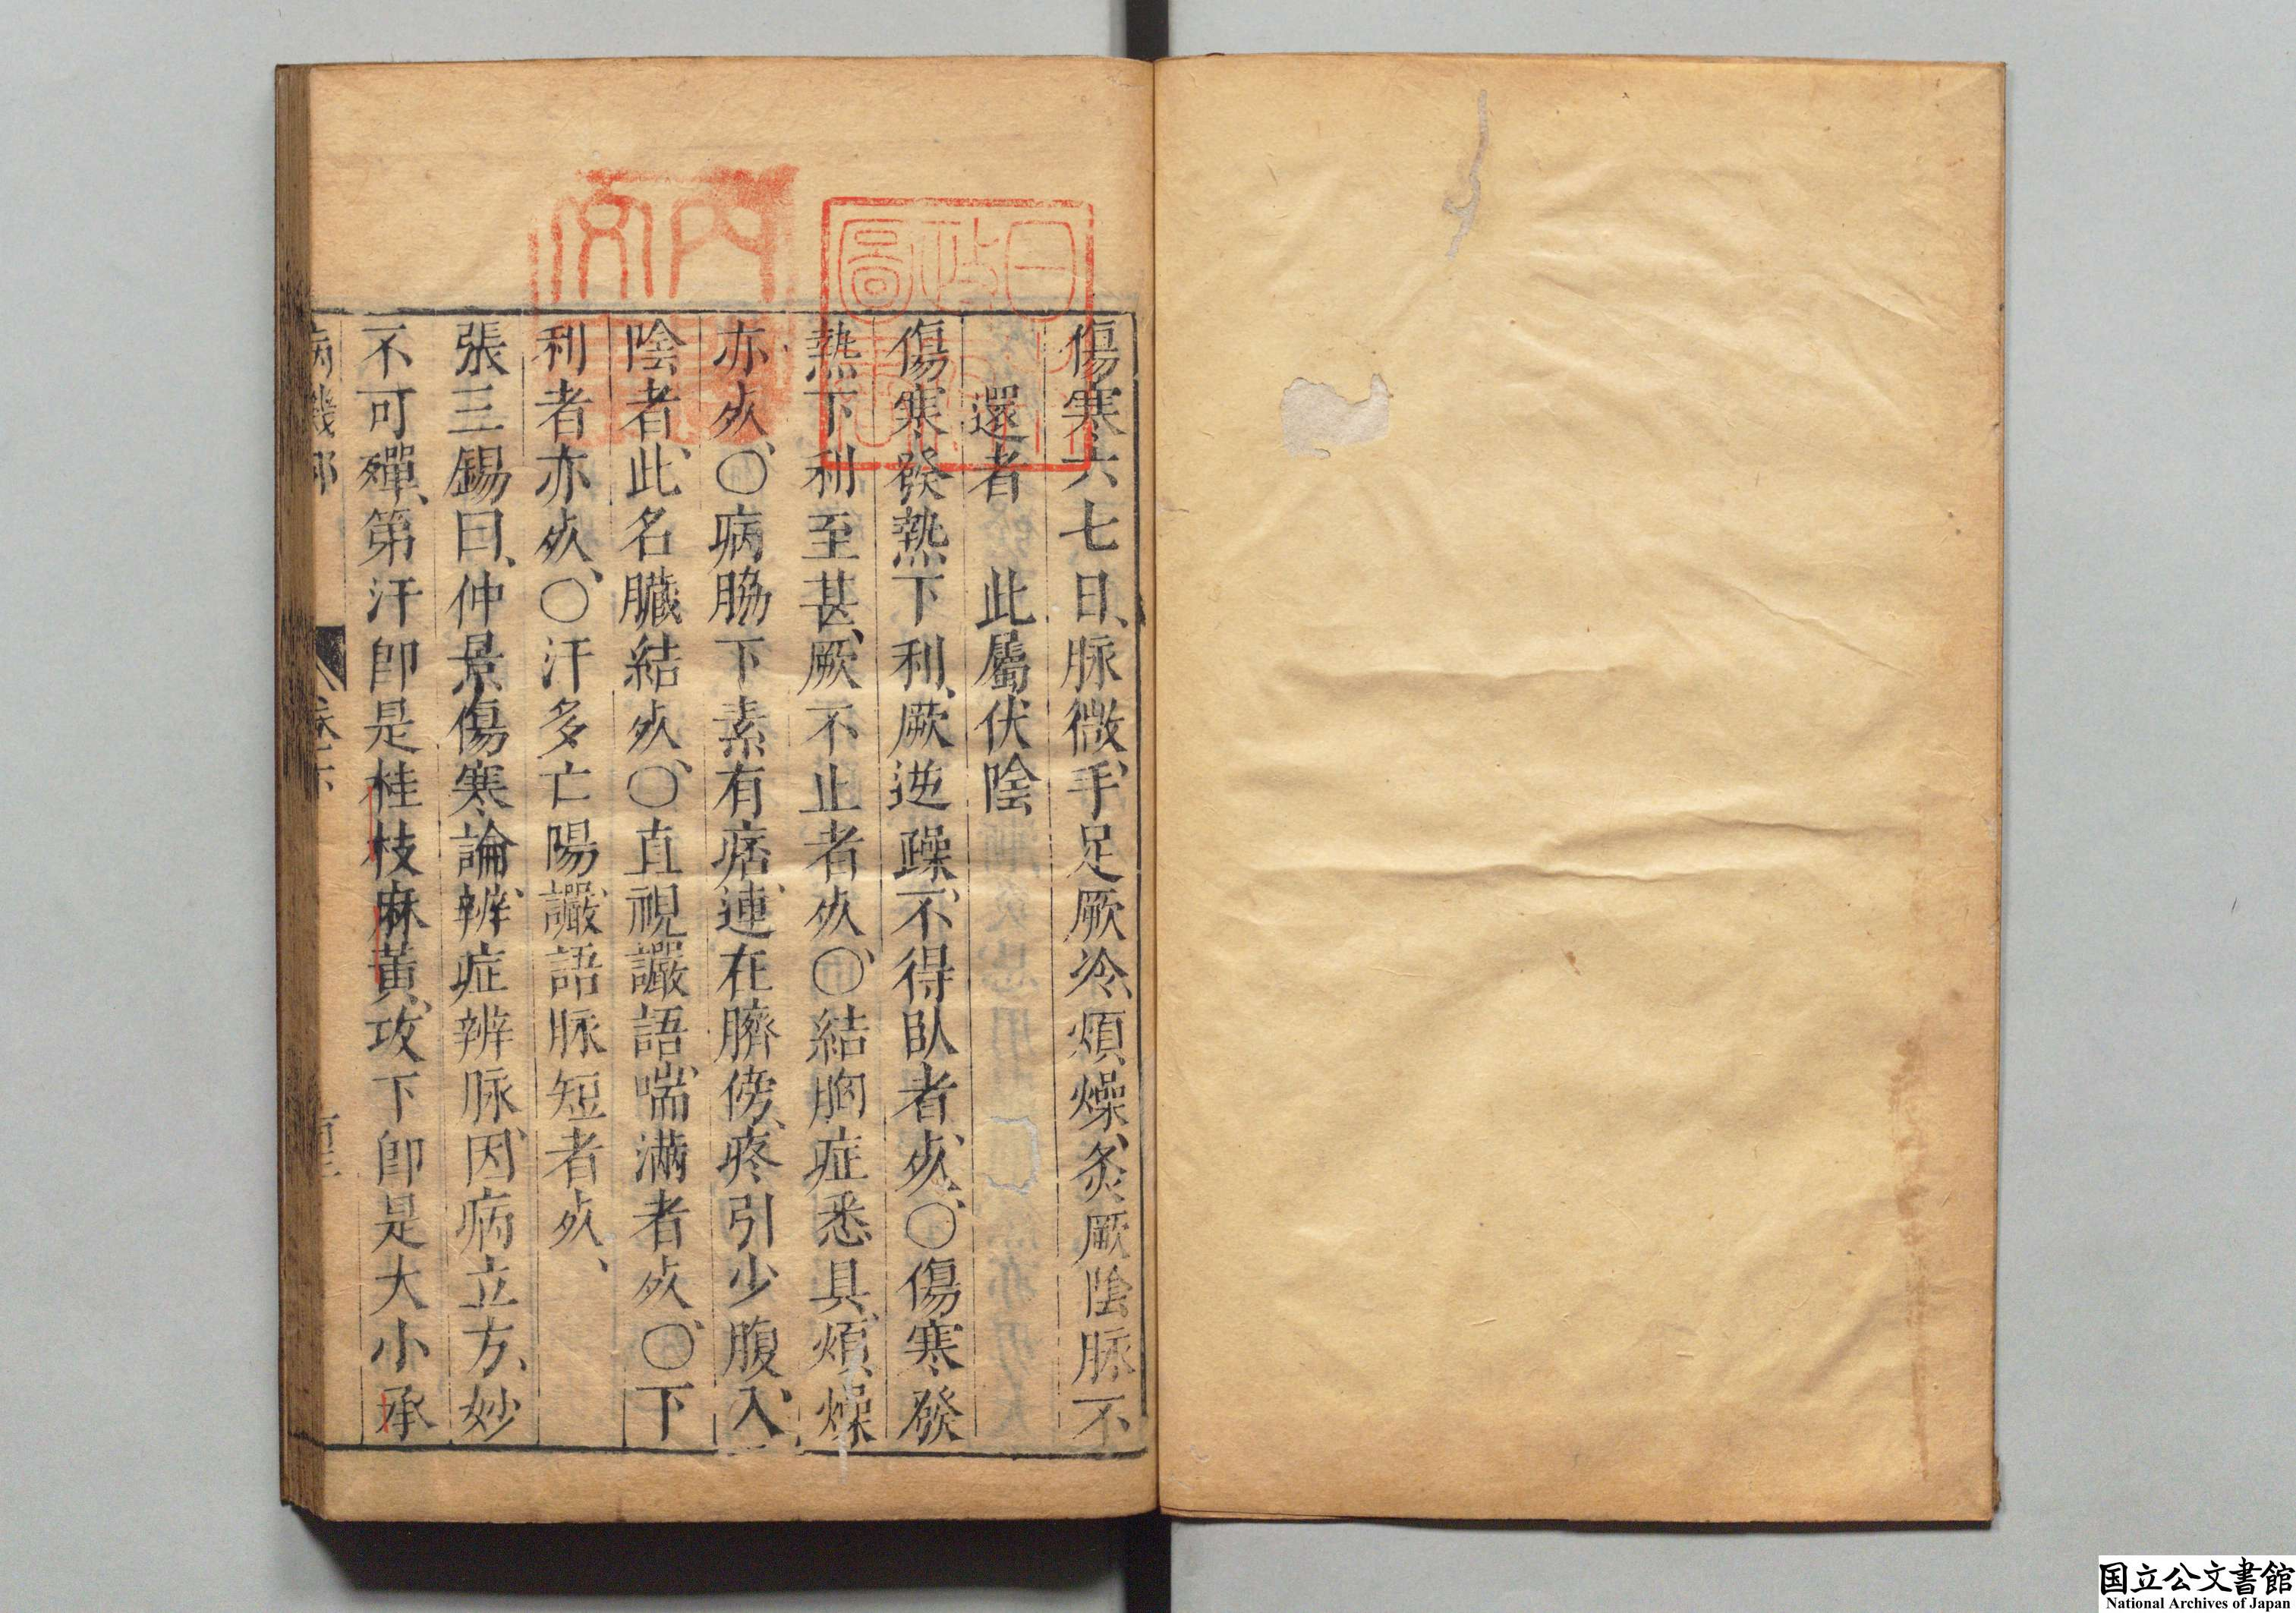 傷寒六七日、脉微、手足厥冷、煩燥、灸厥陰脉不
還者　此屬伏陰
傷寒發熱下利、厥逆躁、不得臥者、死、〇傷寒發
熱下利至甚、厥不止者死、〇結胸症悉具、煩燥
亦死、〇病脇下素有痞、連在臍傍、疼引少腹、入
陰者、此名臟結死、〇直視讝語、喘滿者死、〇下
利者亦死、〇汗多亡陽、讝語脉短者死、
張三錫曰、仲景傷寒論、辨症辨脉、因病立方、妙
不可殫、第汗卽是桂枝麻黃、攻下卽是大小承
病機部
卷下
内
日
圖
国立公文書館
National Archives of Japan